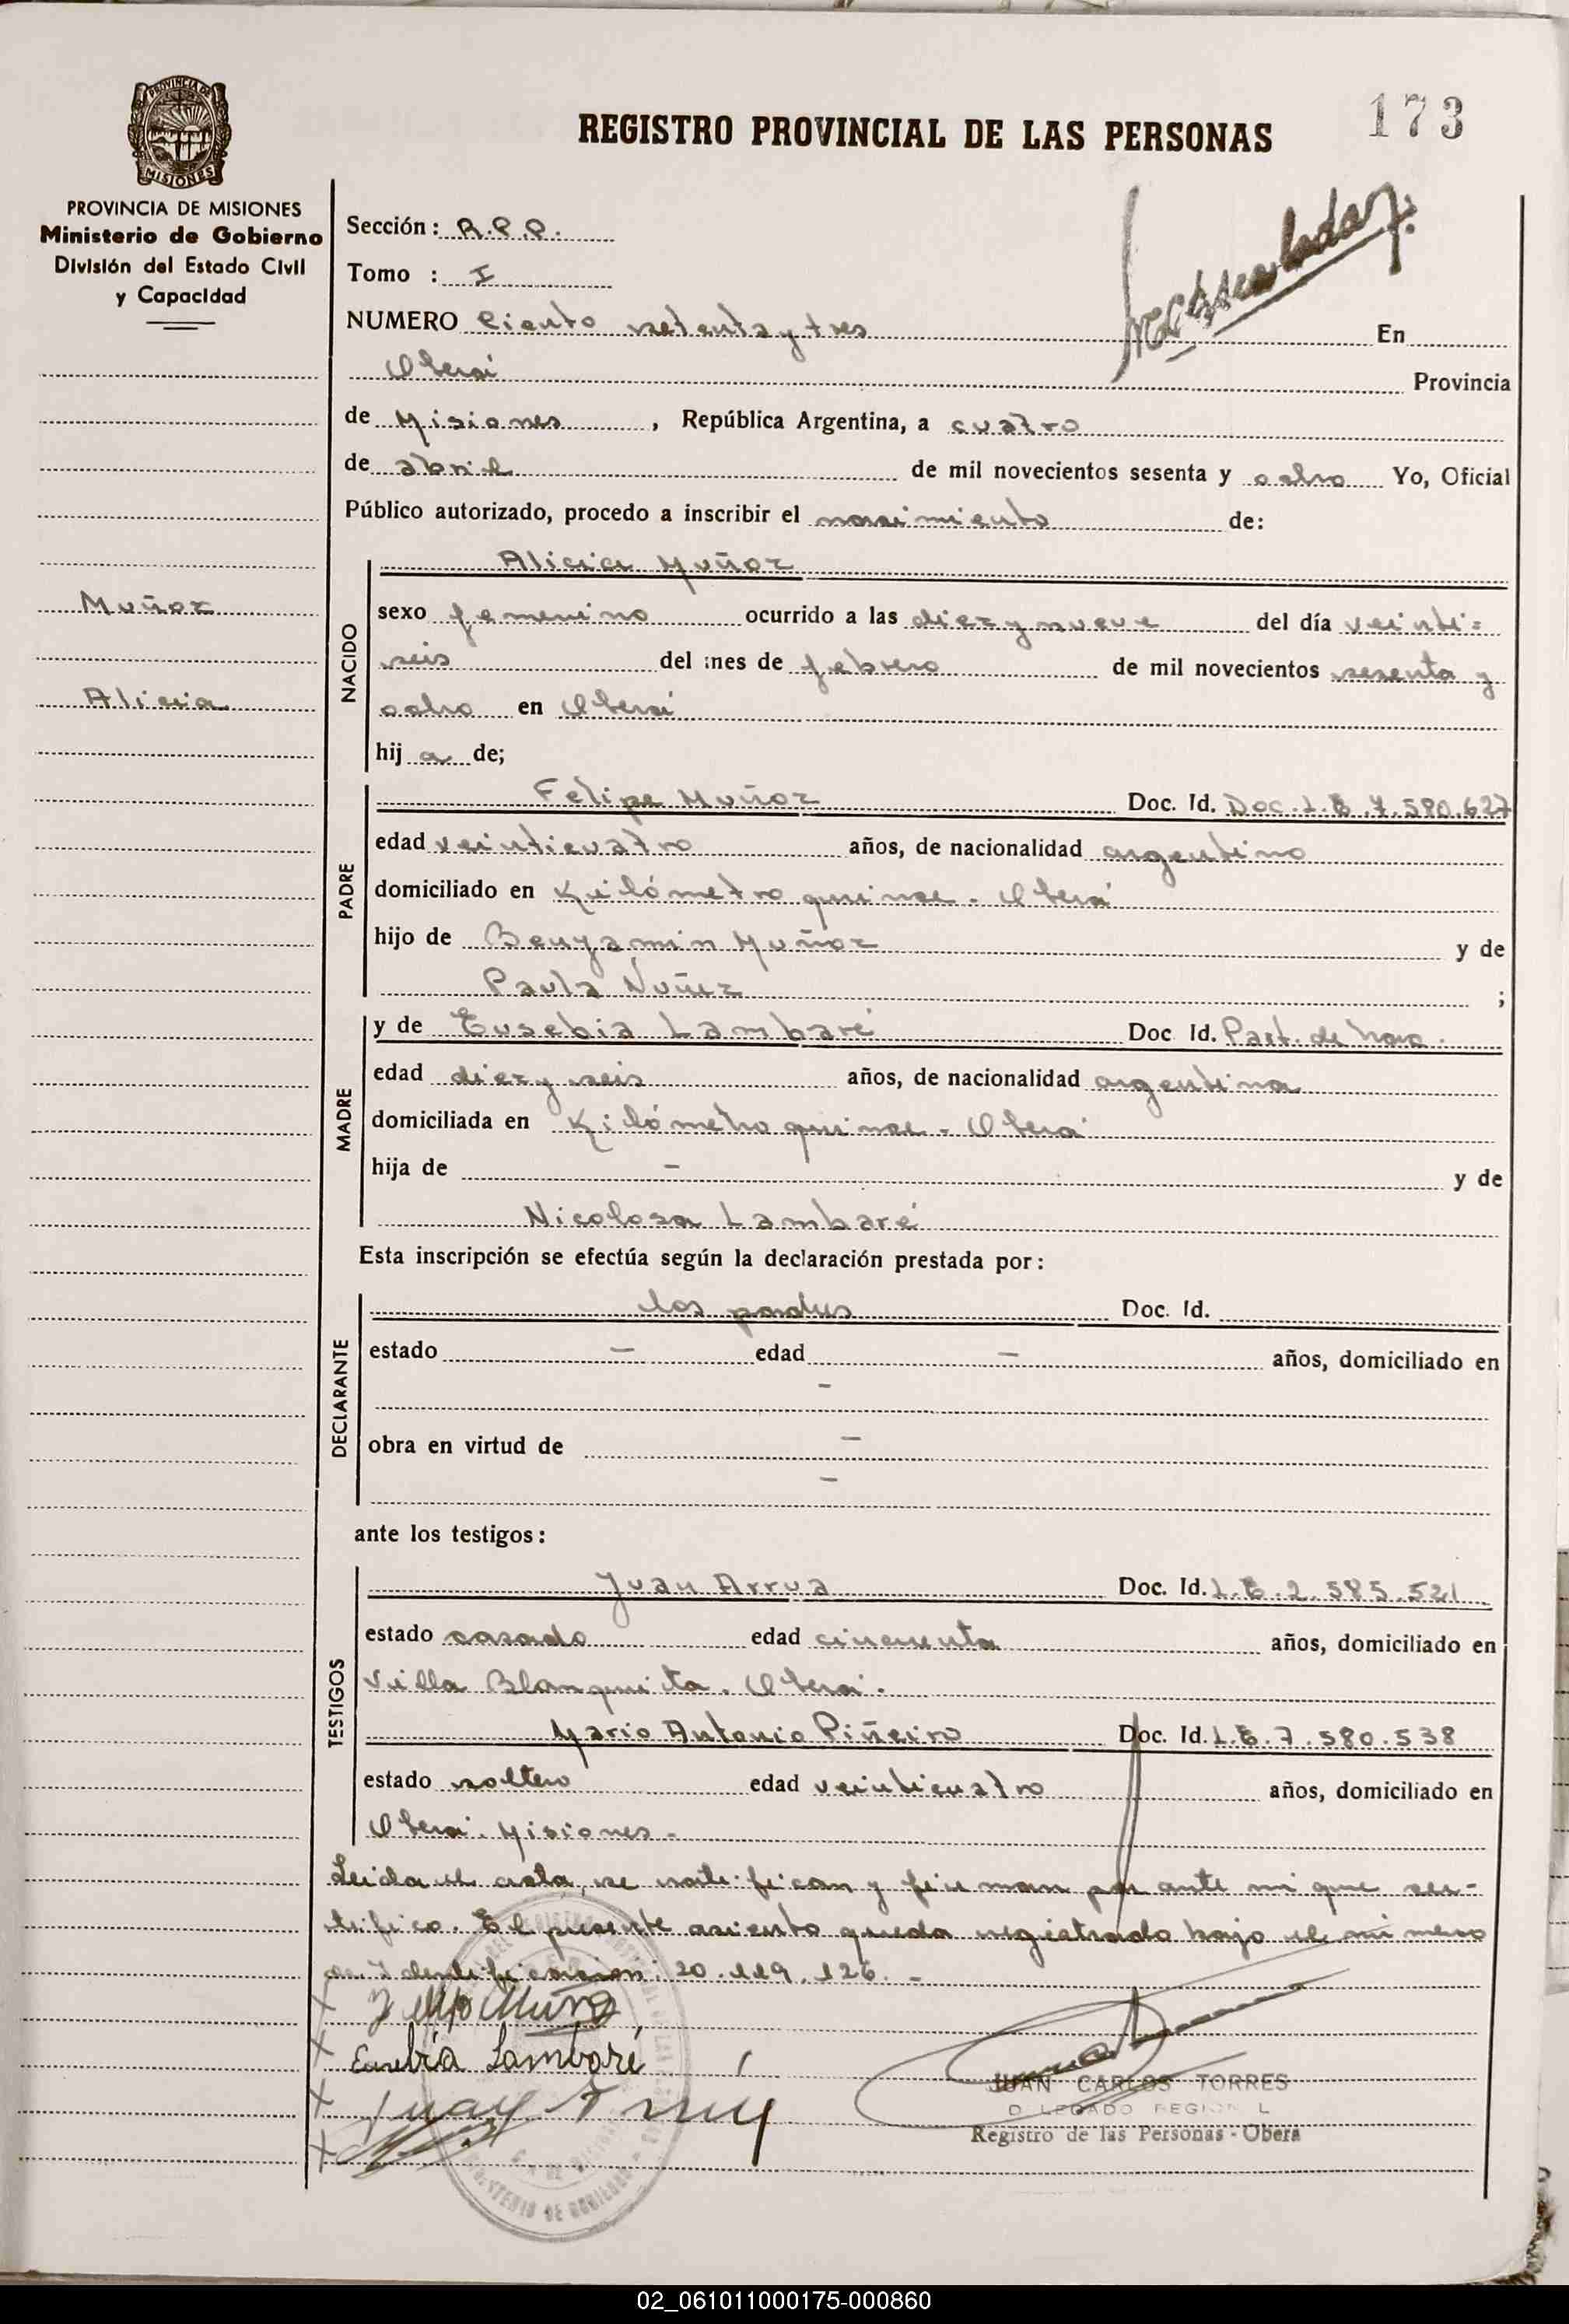 PROVINCIA DE MISIONES
REGISTRO PROVINCIAL DE LAS PERSONAS
173
PROVINCIA DE MISIONES
Ministerio de Gobierno
División del Estado Civil
y Capacidad
Muñoz
Alicia
Sección: R.P.P.
Tomo : I
NUMERO Ciento setenta y tres En
Oberá Provincia
de Misiones, República Argentina, a cuatro
de abril de mil novecientos sesenta y ocho Yo, Oficial
Público autorizado, procedo a inscribir el nacimiento de:
NACIDO
Alicia Muñoz
sexo femenino ocurrido a las diez y nueve del día veinti=
seis del mes de febrero de mil novecientos sesenta y
ocho en Oberá
hij a de;
PADRE
Felipe Muñoz Doc. Id. Doc. L.E 7.580.627
edad veinticuatro años, de nacionalidad argentino
domiciliado en Kilómetro quince - Oberá
hijo de Benjamín Muñoz y de
Paula Núñez ;
MADRE
y de Eusebia Lambaré Doc Id. Part. de Nac.
edad diez y seis años, de nacionalidad argentina
domiciliada en Kilómetro quince - Oberá
hija de - y de
Nicolosa Lambaré
Esta inscripción se efectúa según la declaración prestada por:
DECLARANTE
los padres Doc. Id.
estado - edad - años, domiciliado en
-
obra en virtud de -
-
ante los testigos:
TESTIGOS
Juan Arrua Doc. Id. L.E.2.585.521
estado casado edad cincuenta años, domiciliado en
Villa Blanquita. Oberá.
Mario Antonio Piñeiro Doc. Id. L.E.7.580.538
estado soltero edad veinticuatro años, domiciliado en
Oberá. Misiones-
Leida el acta, se ratifican y firman por ante mi que cer-
tifico. El presente asiento queda registrado bajo el número
de Identificación: 20.119.126.-
Eusebia Lambaré
JUAN CARLOS TORRES
D LEGADO REGION L
Registro de las Personas - Oberá
02_061011000175-000860